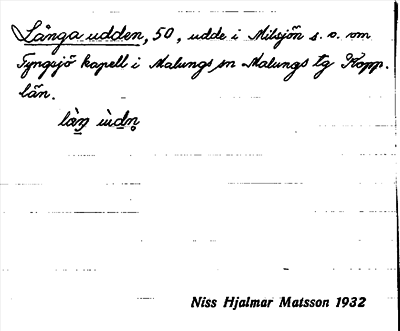 Långa udden, 50, udde i Milsjön s. o. om
Tyngsjö kapell i Malungs sn Malungs tg Kopp.
län.
làŋ ùdn̥
Niss Hjalmar Matsson 1932